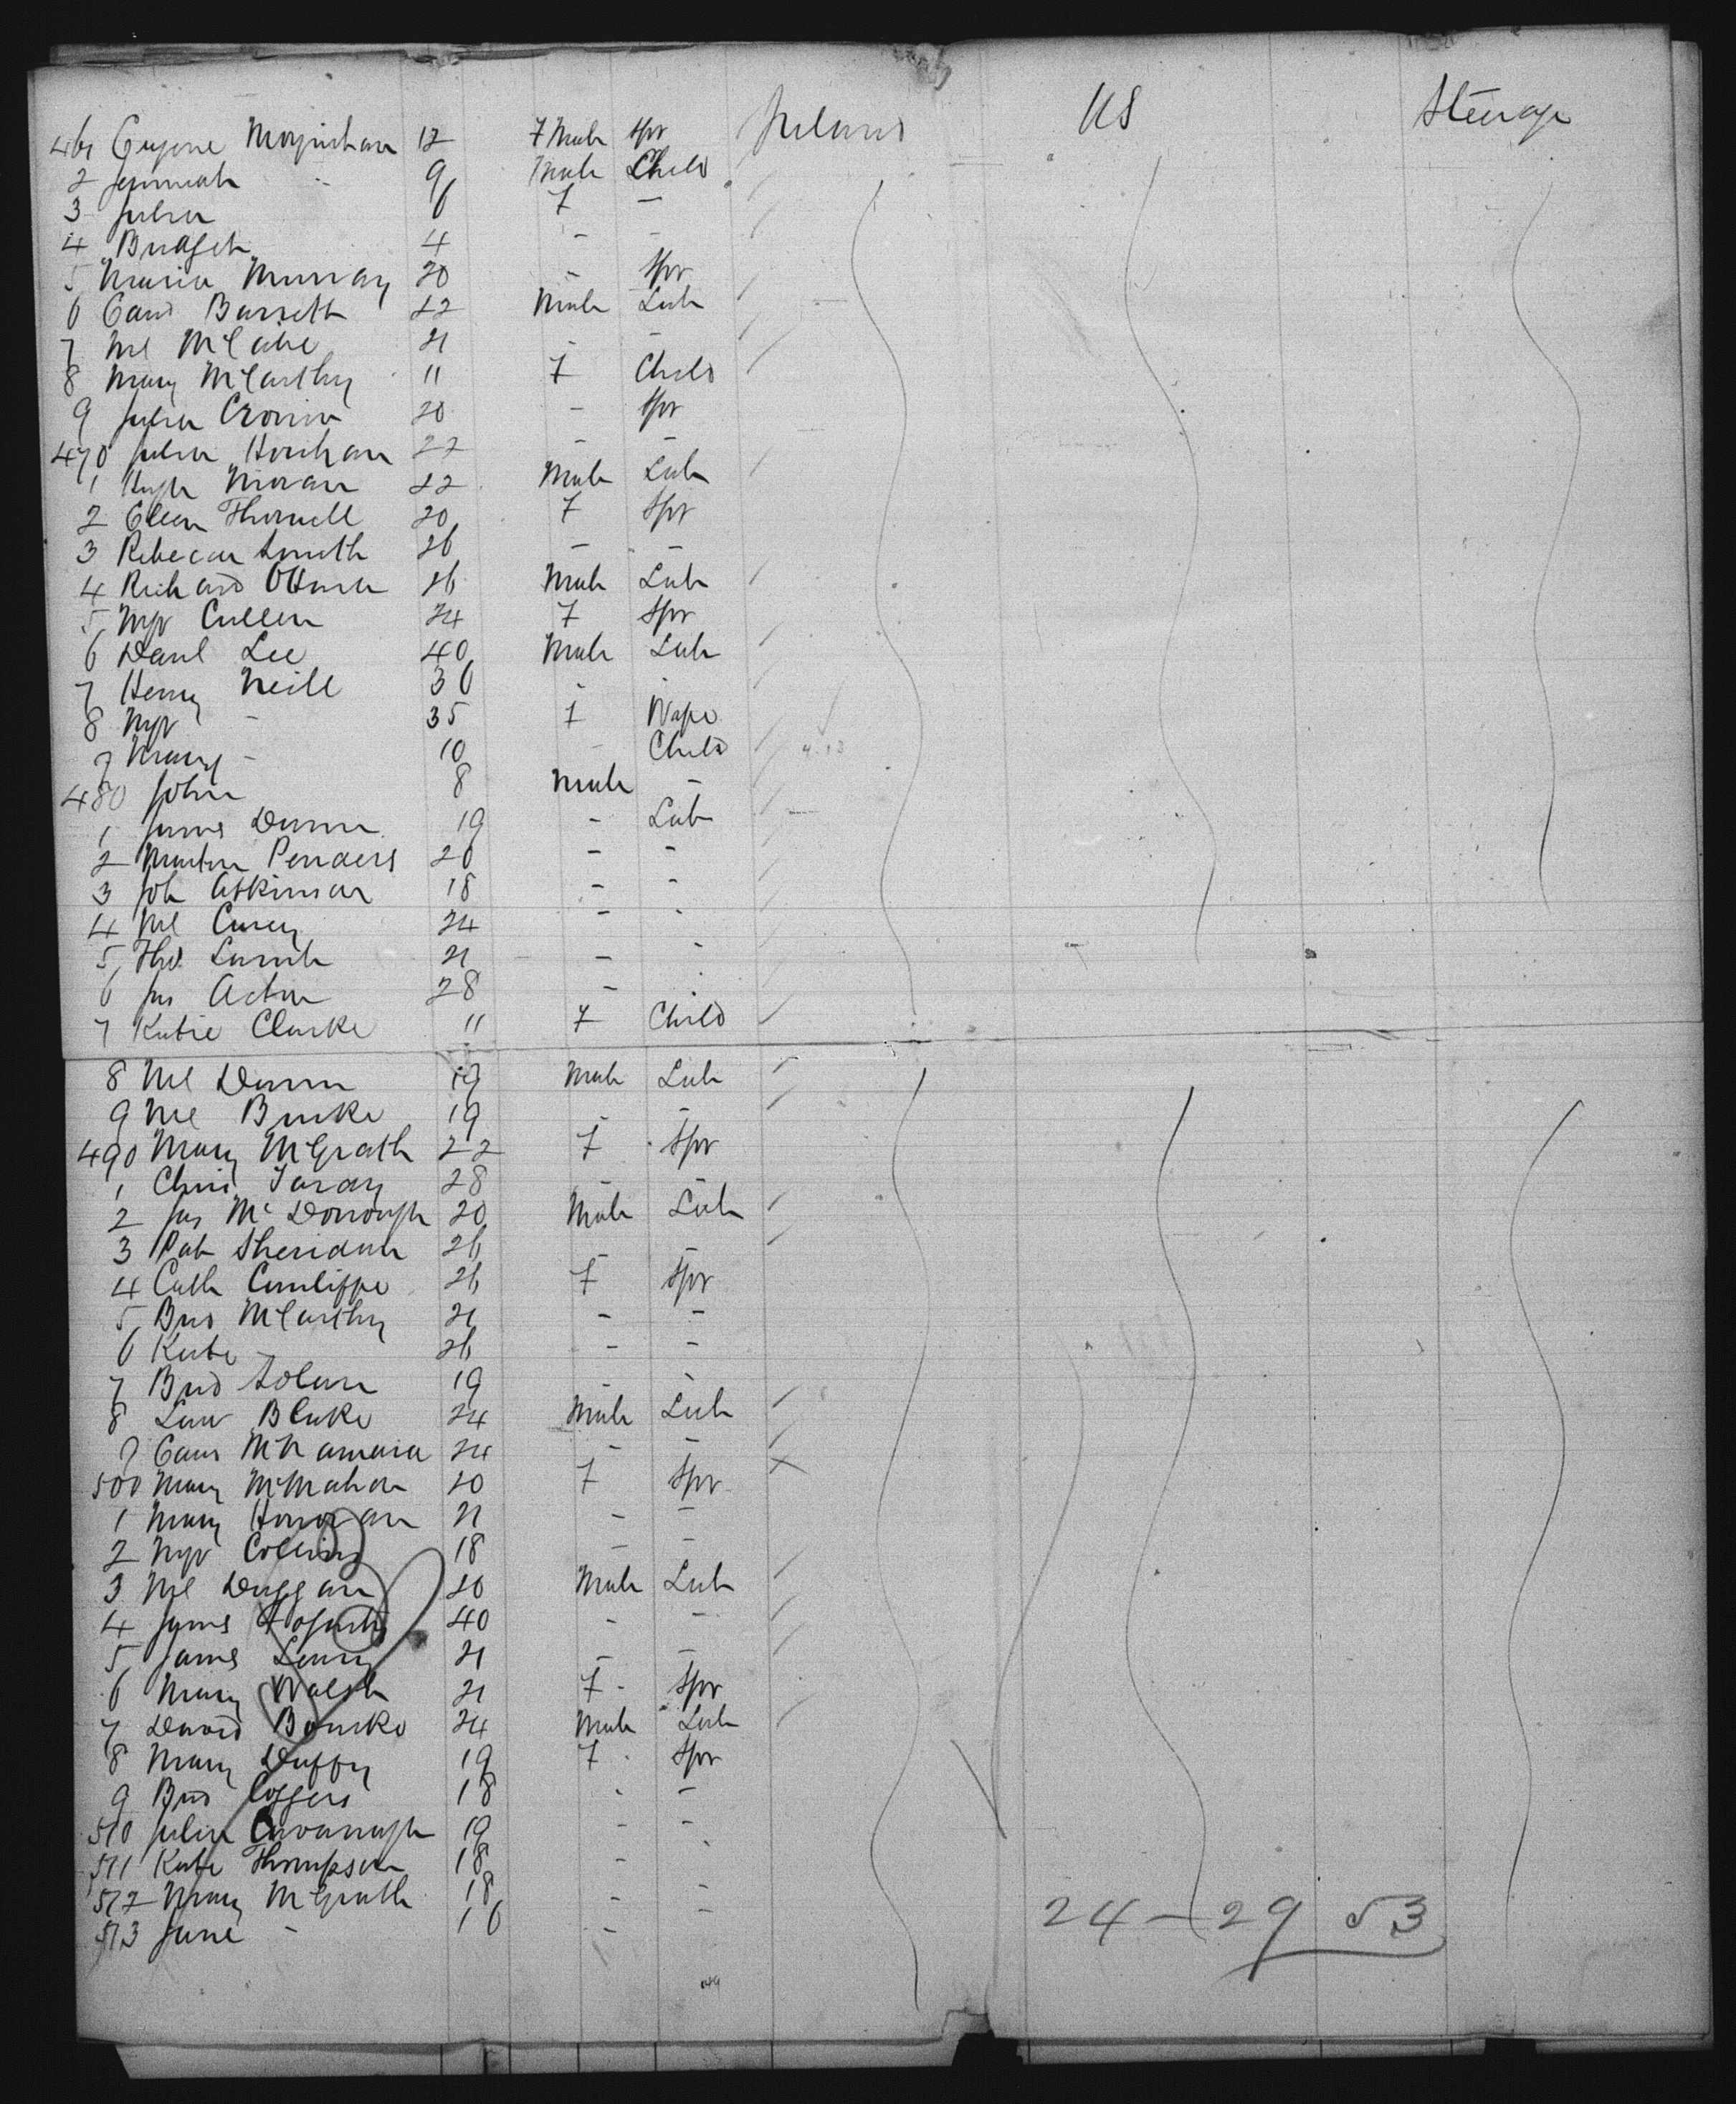 461 Eugene Moynihan 12 F Male Spr Ireland US Steerage
2 Jeremiah - 9 Male Child
3 Julia 6 F -
4 Bridget 4 - -
5 Maria Murray 20 - Spr
6 Edwd Barrett 22 Male Lab
7 Ml McCabe 21 - -
8 Mary McCarthy 11 F Child
9 Julia Cronin 20 - Spr
470 Julia Hourihan 22 - -
1 Hugh Moran 22 Male Lab
2 Ellen Thornell 20 F Spr
3 Rebecca Smith 26 - -
4 Richard 26 Male Lab
5 Mgt Cullen 24 F Spr
6 Danl Lee 40 Male Lab
7 Henry Neill 36 - -
8 Mgt - 35 F Wife
9 Mary - 10 - Child
480 John 8 Male -
1 James Dunn 19 - Lab
2 Martin Penders 20 - -
3 Joh Atkinson 18 - -
4 Ml Carey 24 - -
5 Thos Lamb 21 - -
6 Jas Acton 28 - -
7 Katie Clarke 11 F Child
8 Ml Dunn 19 Male Lab
9 Ml Burke 19 - -
490 Mary McGrath 22 F Spr
1 Chris 28 - -
2 Jas McDonough 20 Male Lab
3 Pat Sheridan 26 - -
4 Cath Cunliffe 26 F Spr
5 Brid McCarthy 21 - -
6 Kate - 26 - -
7 Brid Solan 19 - -
8 Law Blake 24 Male Lab
9 Edwd McNamara 24 - -
500 Mary McMahon 20 F Spr
1 Mary Honoran 21 - -
2 Mgt Collins 18 - -
3 Ml Duggan 20 Male Lab
4 James Fogarty 40 - -
5 James Leary 21 - -
6 Mary Walsh 21 F Spr
7 David Bourke 24 Male Lab
8 Mary Duffy 19 F Spr
9 Brid Coggers 18 - -
510 Julia Cavanagh 19 - -
511 Kate Thompson 18 - -
512 Mary McGrath 18 - -
513 Jane - 16 - -
24 - 29 53